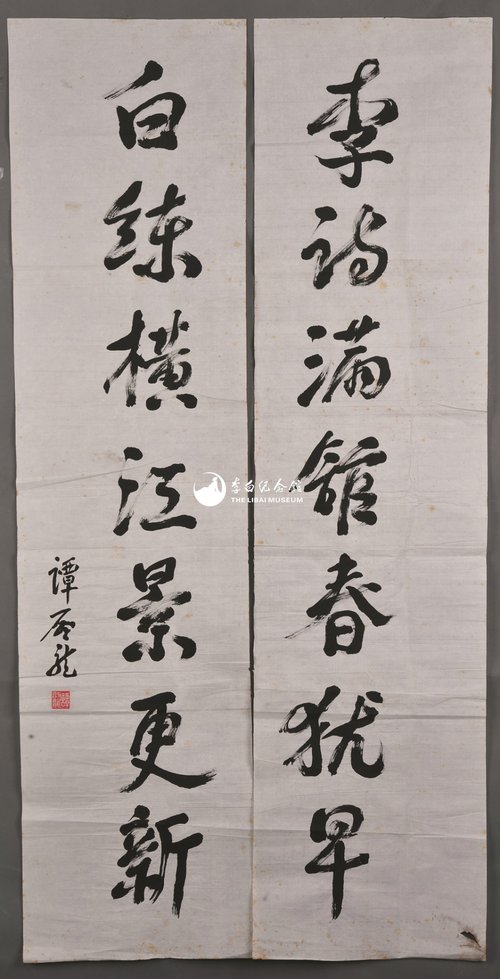 李诗满馆春犹早
白练横江景更新
谭启龙
李白纪念馆
THE LIBAI MUSEUM